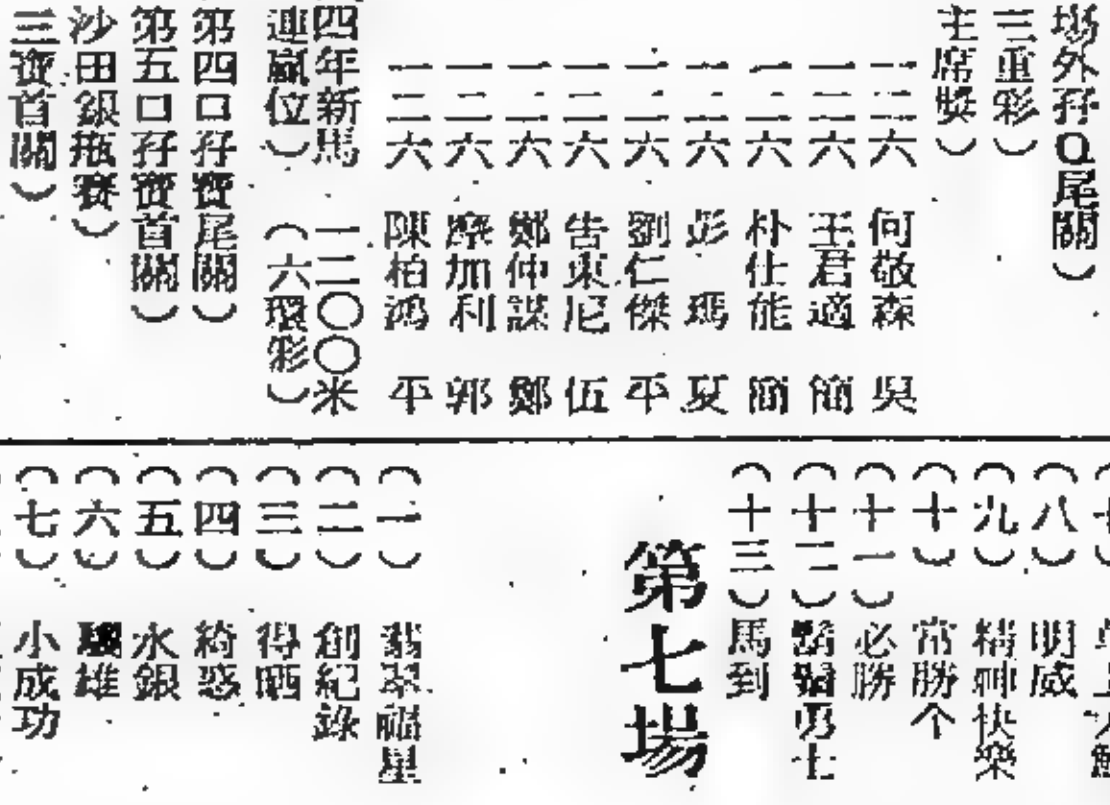 場外孖Q尾關）
三重彩）
主席獎）
一二六 何敬森 吳
一二六 王君適 簡
一二六 朴仕能 簡
一二六 彭 瑪 夏
一二六 劉仁傑 平
一二六 告東尼 伍
一二六 鄭仲謀 鄭
一二六 摩加利 郭
一二六 陳柏鴻 平
四年新馬 一二〇〇米
連贏位）（六環彩）
第四口孖寶尾關）
第五口孖寶首關）
沙田銀瓶賽）
三寶首關）
（八）明威
（九）精神快樂
（十）常勝个
（十一）必勝
（十二）勇士
（十三）馬到
第七場
（一）翡翠福星
（二）創紀錄
（三）得晒
（四）綺惑
（五）永銀
（六）雄
（七）小成功